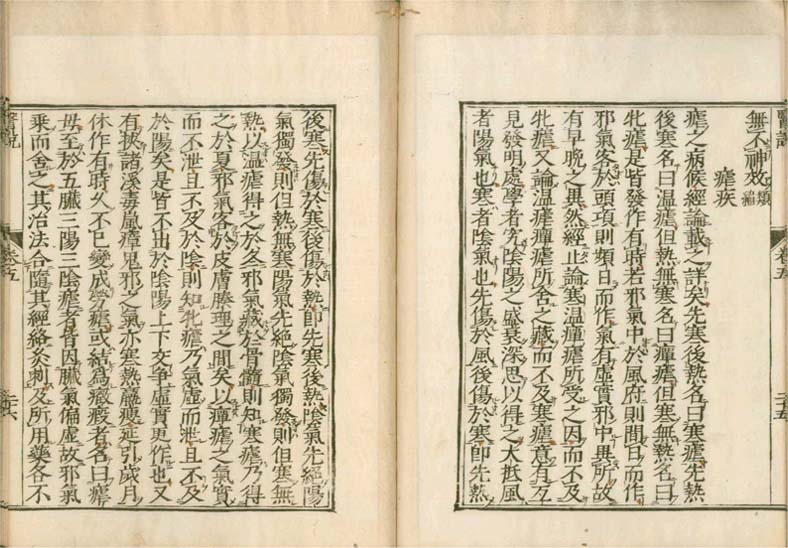 醫說 卷五 二十五
無不神效類編
瘧疾
瘧之病候經論載之詳矣先寒後熱名曰寒瘧先熱
後寒名曰温瘧但熱無寒名曰癉瘧但寒無熱名曰
牝瘧是皆發作有時若邪氣中於風府則間日而作
邪氣客於頭項則頻日而作氣有虛實邪中異所故
有早晚之異然經止論寒温癉瘧所受之因而不及
牝瘧又論温瘧癉瘧所舍之藏而不及寒瘧意有互
見發明處學者究陰陽之盛衰深思以得之大抵風
者陽氣也寒者陰氣也先傷於風後傷於寒即先熱
後寒先傷於寒後傷於熱即先寒後熱陰氣先絕陽
氣獨發則但熱無寒陽氣先絕陰氣獨發則但寒無
熱以温瘧得之於冬邪氣藏於骨髓則知寒瘧乃得
之於夏邪氣客於皮膚腠理之間矣以癉瘧之氣實
而不泄且不及於陰則知牝瘧乃氣虛而泄且不及
於陽矣是皆不出於陰陽上下交爭虛實更作也又
有挾諸溪毒嵐瘴鬼邪之氣亦寒熱羸瘦延引歲月
休作有時久不已變成勞瘧或結為癥瘕者名曰瘧
母至於五臟三陽三陰瘧者皆因臟氣偏虛故邪氣
乘而舍之其治法合隨其經絡灸刺及所用藥各不
醫說 卷五 二十六